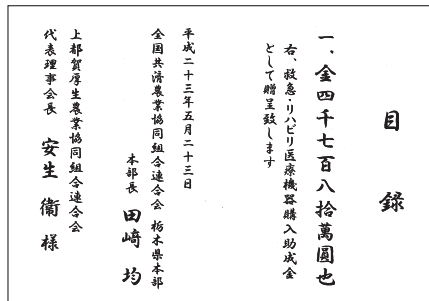 目録
一、金四千七百八拾萬圓也
右、救急・リハビリ医療機器購入助成金
として贈呈致します
平成二十三年五月二十三日
全国共済農業協同組合連合会 栃木県本部
本部長 田﨑 均
上都賀厚生農業協同組合連合会
代表理事会長 安生 衛 様